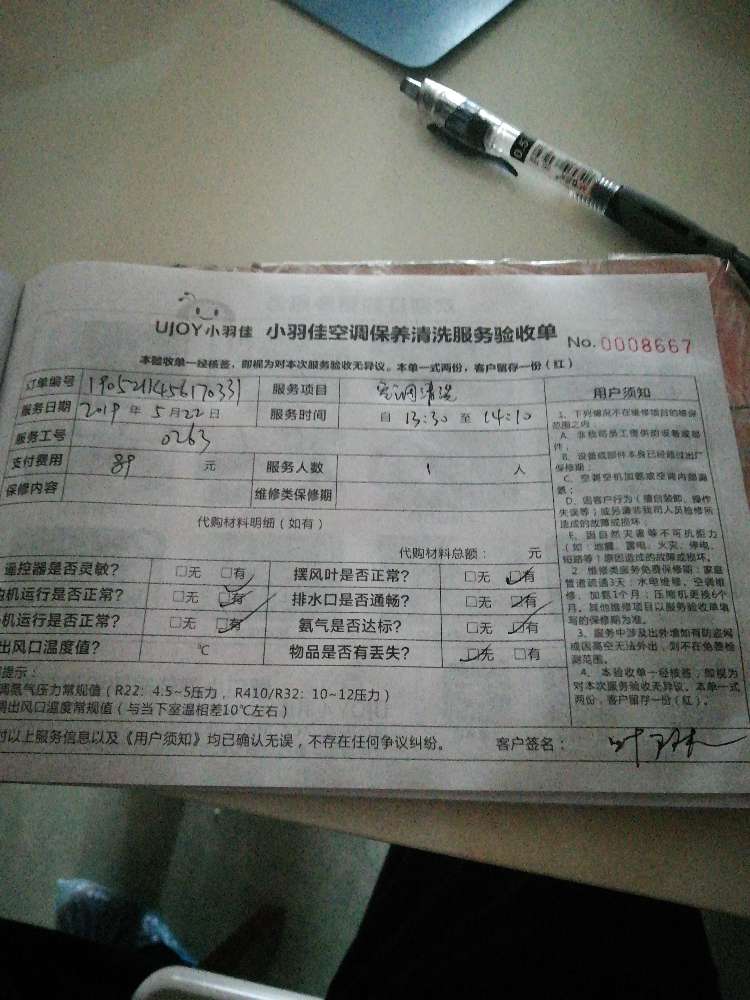 0.5
UJOY小羽佳 小羽佳空调保养清洗服务验收单 No.0008667
本验收单一经核签，即视为对本次服务验收无异议。本单一式两份，客户留存一份（红）
订单编号 1905211456170331 服务项目 空调清洗
服务日期 2019 年 5 月 22 日 服务时间 自 13:30 至 14:10
服务工号 0263
支付费用 89 元 服务人数 1 人
保修内容 维修类保修期
代购材料明细（如有）
代购材料总额： 元
遥控器是否灵敏？ □无 □有 摆风叶是否正常？ □无 □有
机运行是否正常？ □无 □有 排水口是否通畅？ □无 □有
机运行是否正常？ □无 □有 氨气是否达标？ □无 □有
出风口温度值？ ℃ 物品是否有丢失？ □无 □有
提示：
调氨气压力常规值（R22：4.5~5压力，R410/R32：10~12压力）
调出风口温度常规值（与当下室温相差10℃左右）
对以上服务信息以及《用户须知》均已确认无误，不存在任何争议纠纷。 客户签名：
用户须知
1、下列情况不在维修项目的维保
范围之内：
A、非我司员工提供的设备或部
件；
B、设备或部件本身已经超过出厂
保修期；
C、空调空机加氨或空调内漏漏
氨；
D、因客户行为（擅自装卸、操作
失误等）或另请非我司人员检修所
造成的故障或损坏。
E、因自然灾害等不可抗拒力
（如：地震、雷电、火灾、停电、
短路等）原因造成的故障或损坏。
2、维修类服务免费保修期：家庭
管道疏通3天；水电维修、空调维
修、加氨1个月；压缩机更换6个
月。其他维修项目以服务验收单填
写的保修期为准。
3、服务中涉及出外墙如有防盗网
或因高空无法外出，则不在免费检
测范围。
4、本验收单一经核签，即视为
对本次服务验收无异议。本单一式
两份，客户留存一份（红）。